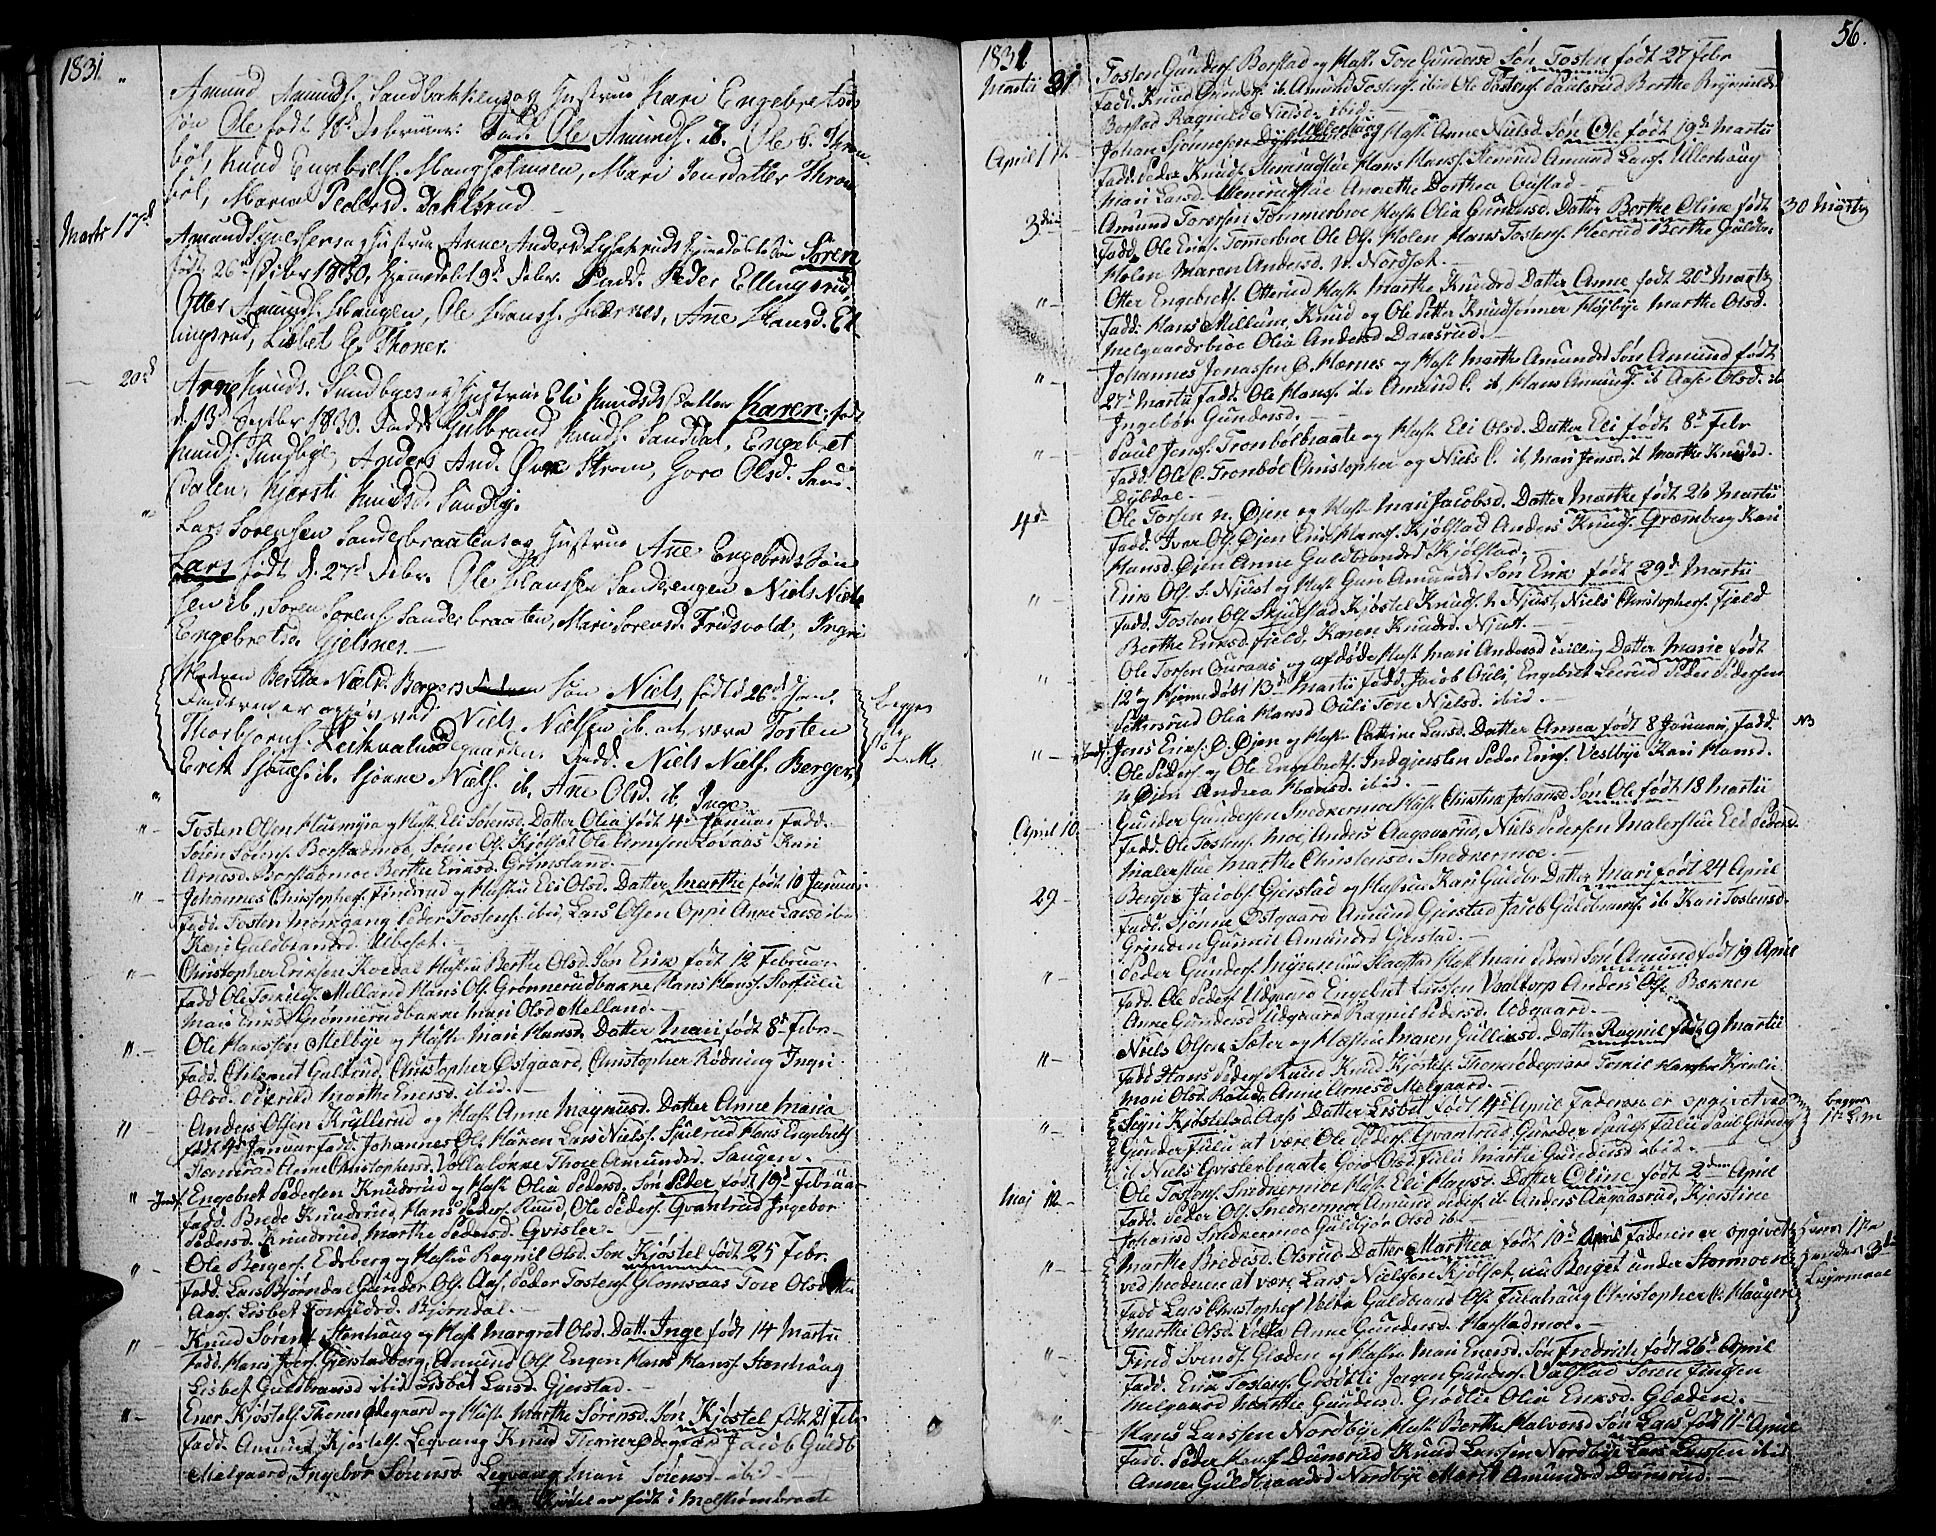 1831. "
Amund Amunds. Sandbakken og Hustrue Kari Engebretsd.
Søn Ole født 18d Februar. Fad. Ole Amunds. ib. Ole C. Thron-
böl, Knud Engebrets. Mangholmen, Mari Jensdatter Thron
böl, Maria Pedersd. Dahlsrud
Marts 17d
Amund og Hustrue Anne Andersd. hjemdøbte Søn Søren
født 26d 1830, hjemdøbt 9d Febr. Fadd. Peder Ellingsrud,
Otter Amunds. Haugen, Ole Hans. Hernes, Ane Hansd. El
lingsrud, Lisbet C. Thoner.
— 20d
Arne Knuds. Sundbye og Hustrue Eli Knudsd. Datter Karen, født
d. 13d Septbr 1830. Fadd. Gulbrand Knuds. Sanddal, Engebret
Knuds. Sundbye, Anders And. Øvre Strom, Goro Olsd. Sand-
dalen, Kjersti Knudsd. Sundby.
"
Lars Sorensen Sanderbraaten og Hustrue Ane Engebretsd. Søn
Lars født d. 27d Febr. Ole Hansen Sandrengen Niels Niel-
sen ib., Soren Sorens. Sanderbraaten, Mari Sorensd. Fridsvold, Ingri
Engebretsd. Gjelsnes. —
Moderen Berthe Nielsd. Bergers Søn Niels, født d. 26d Jan.
Faderen er opgiven ved Niels Nielsen ib. at være Tosten
Thorbjørns. Leikvalmoegaarden. Fadd. Niels Niels. Berger,
Erik ib. Niels. ib. Ane Olsd. ib. Inge
begges
1te L. M.
"-
Tosten Olsen Husmyra og Hust. Eli Sørensd. Datter Olia født 4d Januar Fadd.
Søren Sørens. Borstadmoe Søren Ols. Kjølset Ole Arnesen Løvaas Kari
Arnesd. Borstadmoe Berthe Eriksd. Grimsland. —
"-
Johannes Christophers. Findsrud og Hustru Eli Olsd. Datter Marthe født 10 Januar
Fadd. Tosten Momgang Peder Tostens. ibid, Lars Olsen Oppi Anne Larsd ibid
Kari Guldbrandsd. Ulbeset. —
"-
Christopher Eriksen Koedal Hustru Berthe Olsd. Søn Erik født 12 Februar
Fadd Ole Tomilds. Melland Hans Ols. Grønnerudbakke, Hans Hans. Storfulu
Mari Eriksd. Grønnerudbakke Mari Olsd Melland. —
"-
Ole Hanssen Melbye og Hust. Mari Hansd. Datter Mari født 8d Febr
Fadd. Galtrud, Christopher Østgaard, Christopher Rødning Ingri
Olsd. Marthe Enersd. ibid. —
"
Anders Olsen Kryllerud og Hust. Anne Magnusd. Datter Anne Maria
født 4d Januar Fadd. Johannes Ols. Lars Niels. Spilrud Hans Engebrets.
Stemsrud Anne Christophersd. Vollaløkke Thore Amundsd. Saugen. —
"
Engebret Pedersen Knudsrud og Hust. Olia Pedersd. Søn Peder født 19d Februar
Fadd. Brede Knudsrud, Hans Peders. Ruud, Ole Peders. Qvantrud Ingebor
Pedersd. Knudsrud, Marthe Pedersd. Gvisler. —
"-
Ole Bergers. Edsberg og Hustru Ragnil Olsd. Søn Kjøstel født 25 Febr.
Fadd. Lars Bjørndal Gunder Ols. Aas. Peder Tostens. Glomsaas Tore Olsd.
Aas. Lisbet Tomildsd. Bjørndal. —
"-
Knud Sørens. Stenhaug og Hust. Margret Olsd. Datt. Inge født 14 Martii
Fadd. Hans Gjerstadberg, Amund Ols. Engen Hans Hans. Stenhaug
Lisbet Guldbransd ibid Lisbet Larsd. Gjerstad. —
"-
Ener Kjøstels. Thonerødegaard og Hust. Marthe Sørensd. Søn Kjøstel født 21 Febr
Fadd. Amund Kjøstels. Legvang Knud Thonerødegaard Jacob Guldb.
Melgaard Ingebor Sørensd. Legvang Mari Sørensd. ibid. —
Kjøstel er født i Melstrømbraate
1831
56.
Martii 31
Tosten Gunders. Borstad og Hust. Tore Gundersd. Søn Tosten født 27 Febr
Fadd. Knud Gunders. ib. Amund Tostens. ibid Ole Tostens. Paulsrud Berthe Reynildsd
Borstad Ragnild Nielsd. ibid. —
April 1ste -
Johan Sjønnesen Ullerhaug og Hust. Anne Nielsd. Søn Ole født 19de Martii
Fadd. Peder Knuds. Stemrudstue Hans Hans. Stemrud Amund Lars. Ullerhaug
Mari Larsd. Stemrudstue Anethe Dorthea Oustad —
3die
Amund Torersen Tommerbroe Hust. Olia Gundersd. Datter Berthe Oline født 30 Marty
Fadd. Ole Eriks. Tommerbroe Ole Ols. Holen Hans Tostens. Berthe Guldbr.
Holen Maren Andersd. n. Nordset. —
"-
Otter Engebrets. Otterud Hust. Marthe Knudsd. Datter Anne født 20d Marty
Fadd. Hans Mellum, Knud og Ole Petter Knudsønner Højbye Marthe Olsd.
Melgaardsbroe Olia Andersd Dansrud. —
"-
Johannes Jonassen Ø. Hernes og Hust. Marthe Amundsd Søn Amund født
27d Martii Fadd. Ole Hans. ib. Amund O. ib. Hans Amunds. ib Aase Olsd. ib
Ingebør Gundersd. —
"-
Paul Jens. Trombølbraate og Hust. Eli Olsd. Datter Eli født 8d Febr
Fadd. Ole C. Trombøl Christopher og Niels C. ib, Mari Jensd. ib Marthe Knudsd.
Dybdal. —
4d
Ole Torsen n. Øjen og Hust. Mari Jacobsd. Datter Marthe født 26 Martii
Fadd. Iver Ols. Øjen Erik Hans. Kjølstad Anders Knuds. Græmberg Kari
Hansd. Øjen Anne Guldbrandsd Kjølstad. —
"-
Erik Ols. S. Njust og Hust. Guri Amundsd Søn Erik født 29d Martii
Fadd. Tosten Ols. Skulstad Kjøstel Knuds. n Njust, Niels Christophers. Fjeld
Berthe Eriksd. Fjeld, Karen Knudsd. Njust. —
"-
Ole Torsen Ouraas og afdøde Hust. Mari Andersd tvilling Datter Marie født
12te og hjemdøbt 13d Martii Fadd. Jacob Ouli, Engebret Leerud Peder Pedersen
Pettersrud Olia Hansd Ouli Tore Nielsd. ibid. —
"-
Jens Eriks. Ø. Øjen og Hust. Cathrine Larsd. Datter Anna født 8 Januari, Fadd. NB
Ole Peders. og Ole Engebrets. Indgjersten Peder Eriks. Vestbye Kari Hansd.
n Øjen Andrea Hansd. ibid. —
April 10 -
Gunder Gundersen Snedkermoe Hust. Christine Johansd Søn Ole født 18 Martii
Fadd. Ole Tostens. Moe, Anders Aagaasrud, Niels Pedersen Malerstue Eli Pedersd.
Malerstue Marthe Christensd. Snedkermoe. —
29 -
Berger Jacobs. Gjerstad og Hustrue Kari Guldbr. Datter Mari født 24 April
Fadd. Sjønne Østgaard Amund Gjerstad Jacob Guldbrands. ib Kari Tostensd.
Grinden Gunnil Amundsd Gjerstad. —
"
Peder Gunders. Myren under Hust. Mari Pedersd Søn Amund født 19 April
Fadd. Ole Peders. Udgaard Engebret Larssen Valtorp Anders Ols. Bækken
Anne Gundersd Udgaard Ragnil Pedersd. Udgaard. —
"
Niels Olsen Sæter og Hustru Maren Gulliksd. Datter Ragnil født 9 Martii
Fadd Hans Peders. Ruud Knud Kjøstels. Thonerødegaard Tomil Kjenlie
Mari Olsd. Ruud, Anne Arnesd Melgaard. —
"-
Segri Kjøstelsd. Aas. Datter Lisbet født 14d April Faderen er opgivet ved
Gunder Fulu at være Ole Peders. Qvantrud Gunder Pauls. Fulu Paul Gunders.
ib Niels Gvislerbraate Goro Olsd. Fulu Marthe ibid. —
begges 1te L. m
Maj 12 -
Ole Tostens. Snedkermoe Hust. Eli Hansd. Datter Oline født 2den April
Fadd. Peder Ols. Snedkermoe Amund Peders. ib Anders Aagaasrud, Kjerstine
Johansd Snedkermoe Guldbjør Olsd ib. —
"-
Marthe Bredesd. Olsrud Datter Marthea født 10d April Faderen er opgivet
ved moderen at være Lars Nielsen Kjølset, nu Berget under Stormoen
Fadd Lars Christophers. Velta Guldbrand Ols. Fuluhaug Christopher C. Haugen
Marthe Olsd. Velta Anne Gundersd. Harstadmoe. —
hans 1te
hendes 3die
Lejermaal
"-
Find Svends. Gløden og Hustru Mari Enersd. Søn Fredrich født 26d April
Fadd. Erik Tostens. Grødtli Jørgen Gunders. Valstad Søren Jingen
Melgaard Marthe Gundersd. Grødlie Olia Eriksd. Gløden. —
"
Hans Larssen Nordbye Hust. Berthe Halvorsd Søn Lars født 11d April
Fadd. Peder Dunsrud Knud Larssen Nordbye Lars Larssen ibid
Anne Guldbrandsd Nordbye Marit Amundsd Dunsrud. —